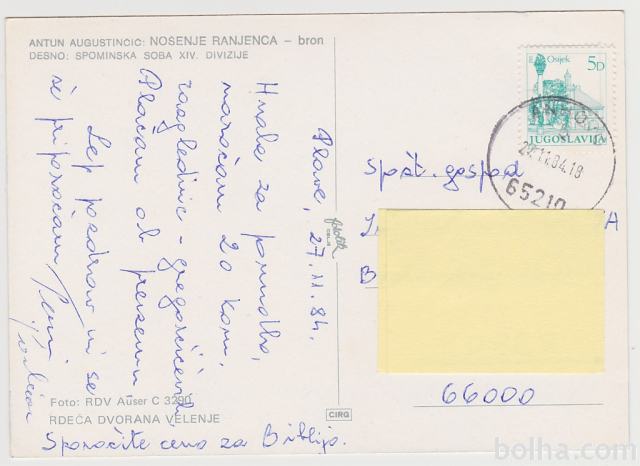 ANTUN AUGUSTINČIĆ: NOŠENJE RANJENCA – bron
DESNO: SPOMINSKA SOBA XIV. DIVIZIJE
Plave, 27.11.84.
Hvala za ponudbo,
naročam 20 kom.
razglednic - gregorčičevih,
Plačam ob prevzemu
Lep pozdrav in se
se priporočam
Foto: RDV Auser C 3290
RDEČA DVORANA VELENJE
Sporočite ceno za Biblijo.
CIRG
Osijek
5D
JUGOSLAVIJA
27.11.84.18
65210
Spošt. gospod
A
B
66000
bolha.com